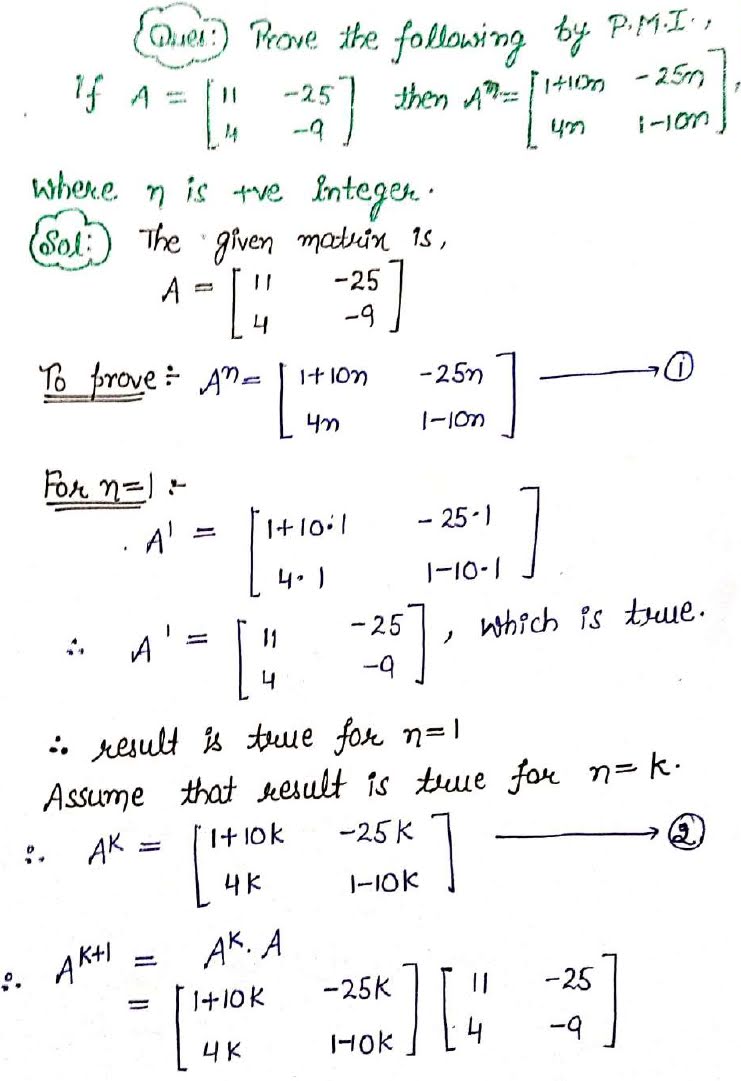 Ques:) Prove the following by P.M.I.,
If A = [11 -25
4 -9] then Aⁿ = [1+10n -25n
4n 1-10n],
where n is +ve integer.
Sol:) The given matrix is,
A = [11 -25
4 -9]
To prove÷ Aⁿ = [1+10n -25n
4n 1-10n] → ①
For n=1 :-
A¹ = [1+10·1 -25·1
4·1 1-10·1]
∴ A¹ = [11 -25
4 -9], which is true.
∴ result is true for n=1
Assume that result is true for n=k.
∴ Aᴷ = [1+10K -25K
4K 1-10K] → ②
∴ Aᴷ⁺¹ = Aᴷ. A
= [1+10K -25K
4K 1-10K] [11 -25
4 -9]